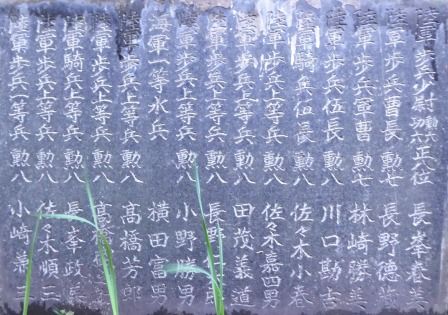 陸軍歩兵少尉 勲六 功六 正八位 長峯春美
陸軍歩兵曹長 勲七 長野徳
陸軍歩兵軍曹 勲七 林崎勝美
陸軍歩兵伍長 勲八 川口勘吉
陸軍騎兵伍長 勲八 佐々木小春
陸軍歩兵上等兵 勲八 佐々木嘉四男
陸軍歩兵上等兵 勲八 田茂義道
陸軍歩兵上等兵 勲八 長野
陸軍歩兵上等兵 勲八 小野勝男
海軍一等水兵 横田富男
陸軍歩兵上等兵 勲八 高橋芳郎
陸軍歩兵上等兵 勲八 高橋
陸軍騎兵上等兵 勲八 長峯政義
陸軍歩兵上等兵 勲八 佐々木順三
陸軍歩兵上等兵 勲八 小崎義三